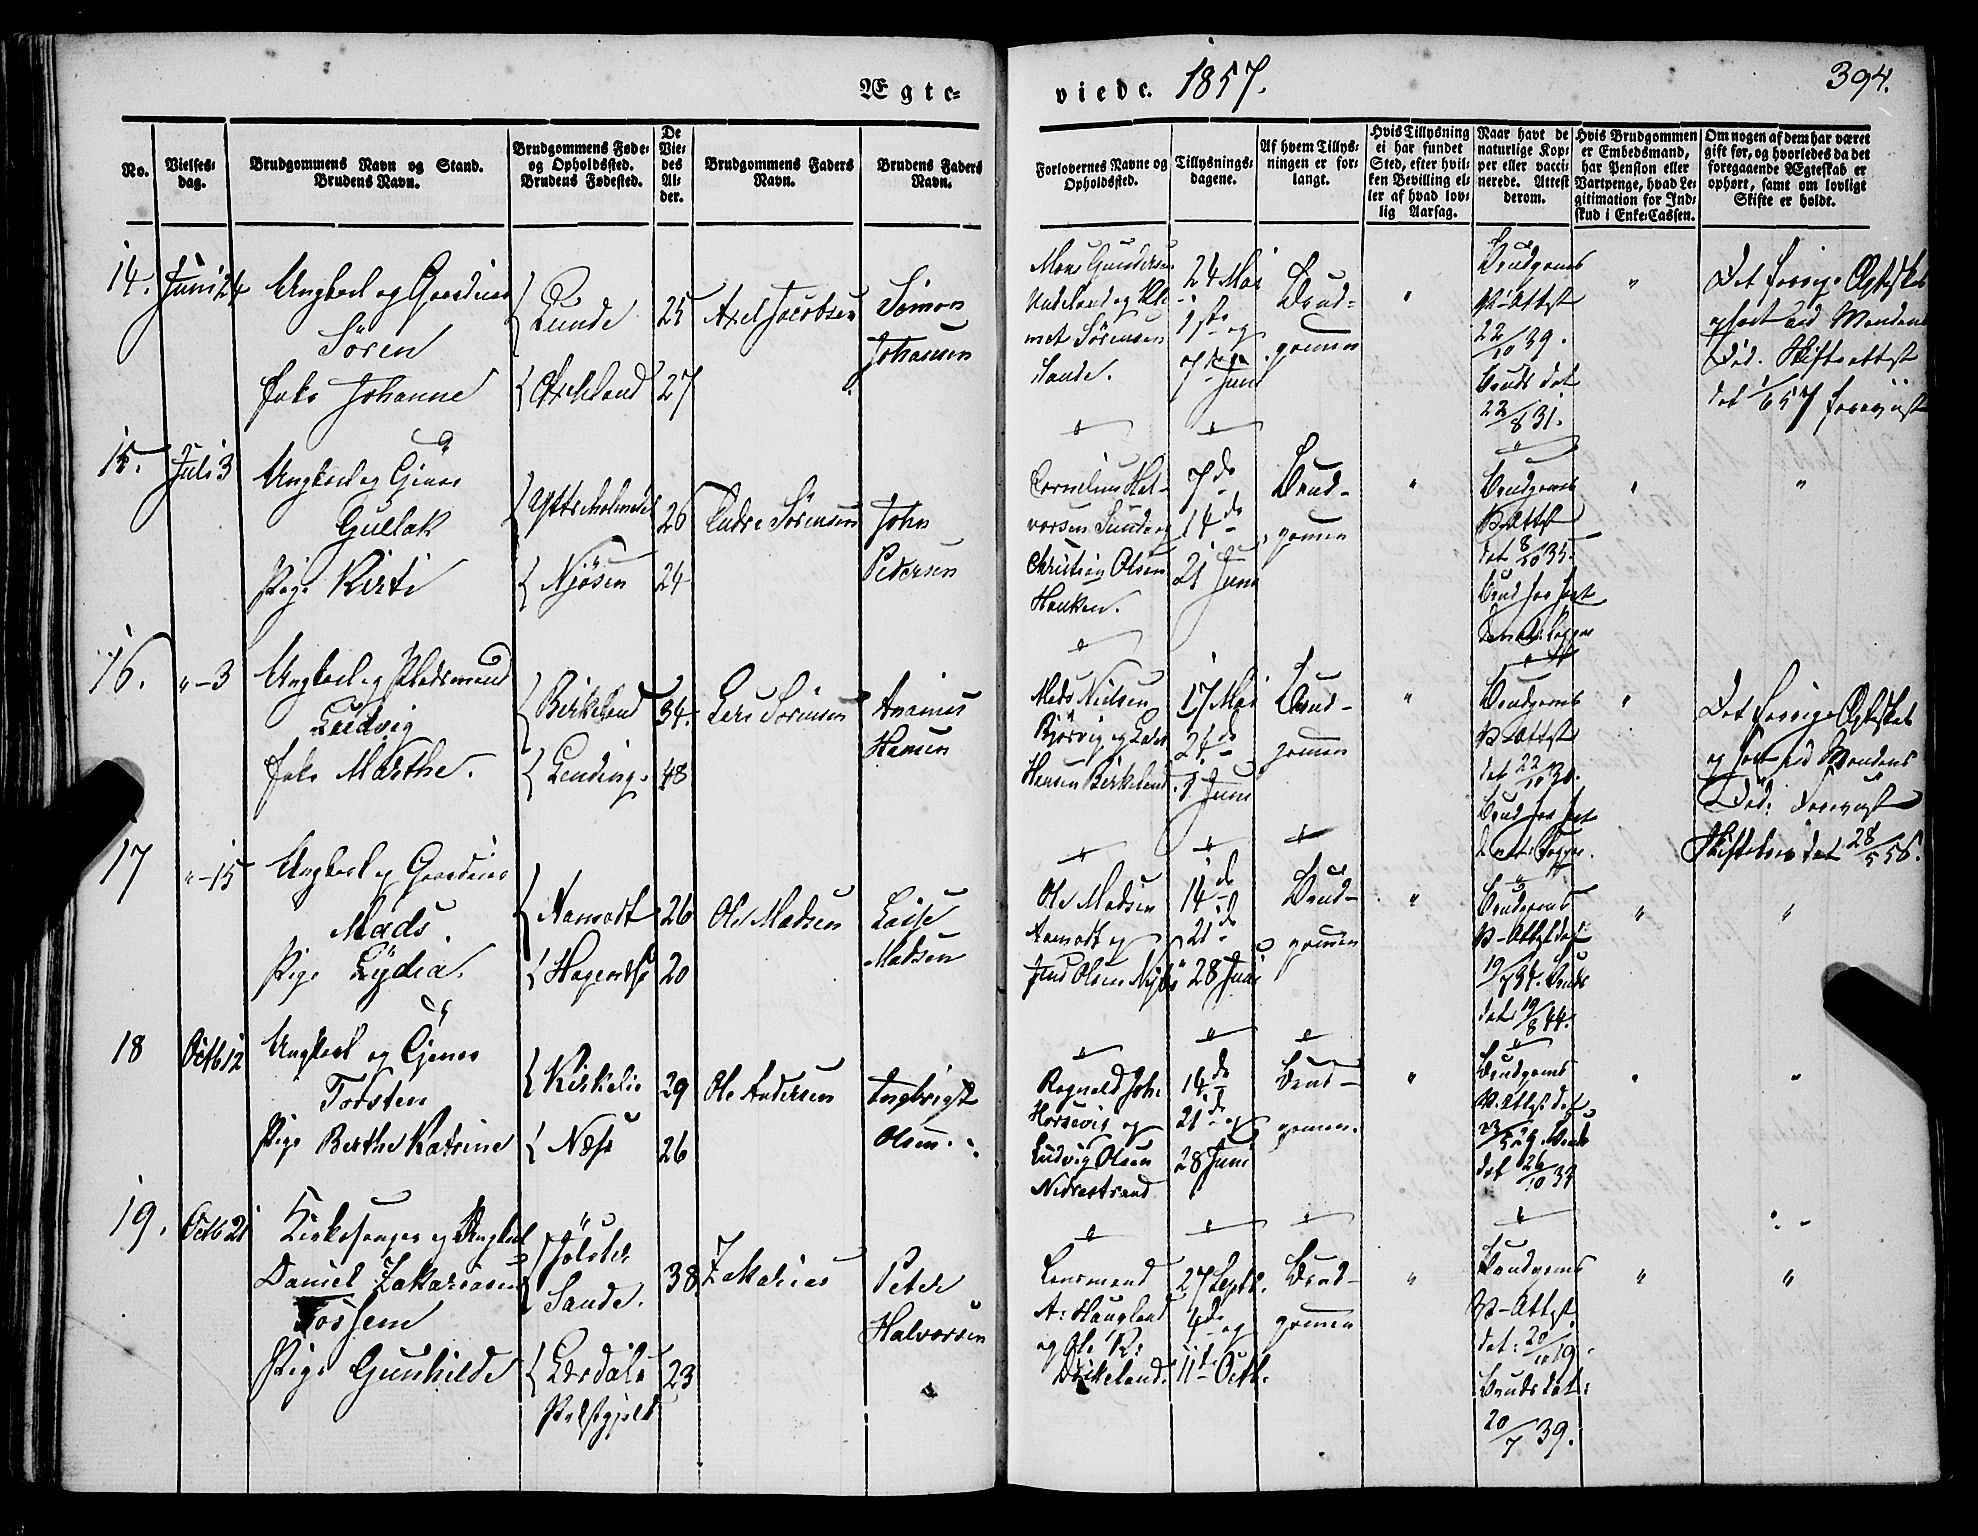 Ægte-
viede. 1857.
394.
No.
Vielses-
dag.
Brudgommens Navn og Stand.
Brudens Navn.
Brudgommens Føde-
og Opholdssted.
Brudens Fødested.
De
Vie-
des
Al-
der.
Brudgommens Faders
Navn.
Brudens Faders
Navn.
Forlovernes Navne og
Opholdssted.
Tillysnings-
dagene.
Af hvem Tillys-
ningen er for-
langt.
Hvis Tillysning
ei har fundet
Sted, efter hvil-
ken Bevilling el-
ler af hvad lov-
lig Aarsag.
Naar havt de
naturlige Kop-
per eller vacci-
nerede. Attest
derom.
Hvis Brudgommen
er Embedsmand,
har Pension eller
Vartpenge, hvad Le-
gitimation for Ind-
skud i Enke-Cassen.
Om nogen af dem har været
gift før, og hvorledes da det
foregaaende Ægteskab er
ophørt, samt om lovligt
Skifte er holdt.
14. Juni 24
Ungkarl og Gaardmand
Sören
Enke Johanne
Lunde
25
27
Axel Jacobsen
Simon
Johansen
Mons Gundersen
met Sörensen
Sande.
24 Mai
1ste og
7de Juni
Brud-
gommen
"
Brudgoms
V-Attest
22/10 39.
Bruds dat
22/8 31.
"
Det forrige Ægteskab
ophört ved Mandens
Död. Skifteattest
15. Juli 3
Ungkarl og
Gullak
Pige Kerti
Njösen
26
24
Endre Sörensen
John
Pedersen
Cornelius Hal-
vorsen Sunde og
Christian Olsen
Hauken.
7de
14de
21 Juni
Brud-
gommen
"
Brudgoms
V-Attest
dat 8/10 35.
Brud har havt
de nat: Kopper
"
"
16. "-3
Ungkarl og Pladsmand
Ludvig
Enke Marthe.
Birkeland
Lending.
34.
48
Lars Sörensen
Ananias
Hansen
Mads Nielsen
Hansen Birkeland
17 Mai
24de
1 Juni
Brud-
gommen
"
Brudgoms
V-Attest
dat 22/10 30.
Brud har havt
d. nat: Kopper.
"
Det forrige Ægteskab
ophört ved Mandens
Död: Forevist
Skiftebrev dat 28/5 56.
17 "-15
Ungkarl og Gaardmand
Mads.
Pige Lydia.
Aamodt
26
20
Ole Madsen
Lasse
Madsen
Ole Madsen
Aamodt og
Jens Olsen
14de
21de
28 Juni
Brud-
gommen
"
Brudgoms
V-Attest dat
Bruds
dat: 19/8 44.
"
"
18 Octb 12
Ungkarl og
Torsten
Pige Berthe Katrine
Næss
29
26
Ole Andersen
Ingbrigt
Olsen.
Ragnald Joh.
Horsevig og
Ludvig Olsen
Nedrestrand
14de
21de og
28 Juni
Brud-
gommen.
"
Brudgoms
V.Attest dat
Bruds
"
"
19. Octb 21
Kirkesanger og Ungkarl
Daniel Zakariasen
Pige Gunhilde
Jölster
Sande.
Lærdals
Præstgjeld
38
23
Zakarias
Peter
Halvorsen
Lensmand
A: Haugland
og Ole R:
27 Septb.
4de og
11te Octb.
Brud-
gommen
"
Brudgoms
V-Attest
dat: 20/10 19.
Bruds dat:
20/7 39.
"
"